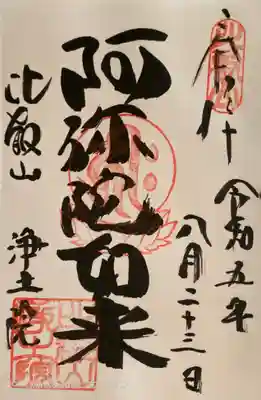 奉拝
令和五年
八月二十三日
阿弥陀如来
比叡山
浄土院